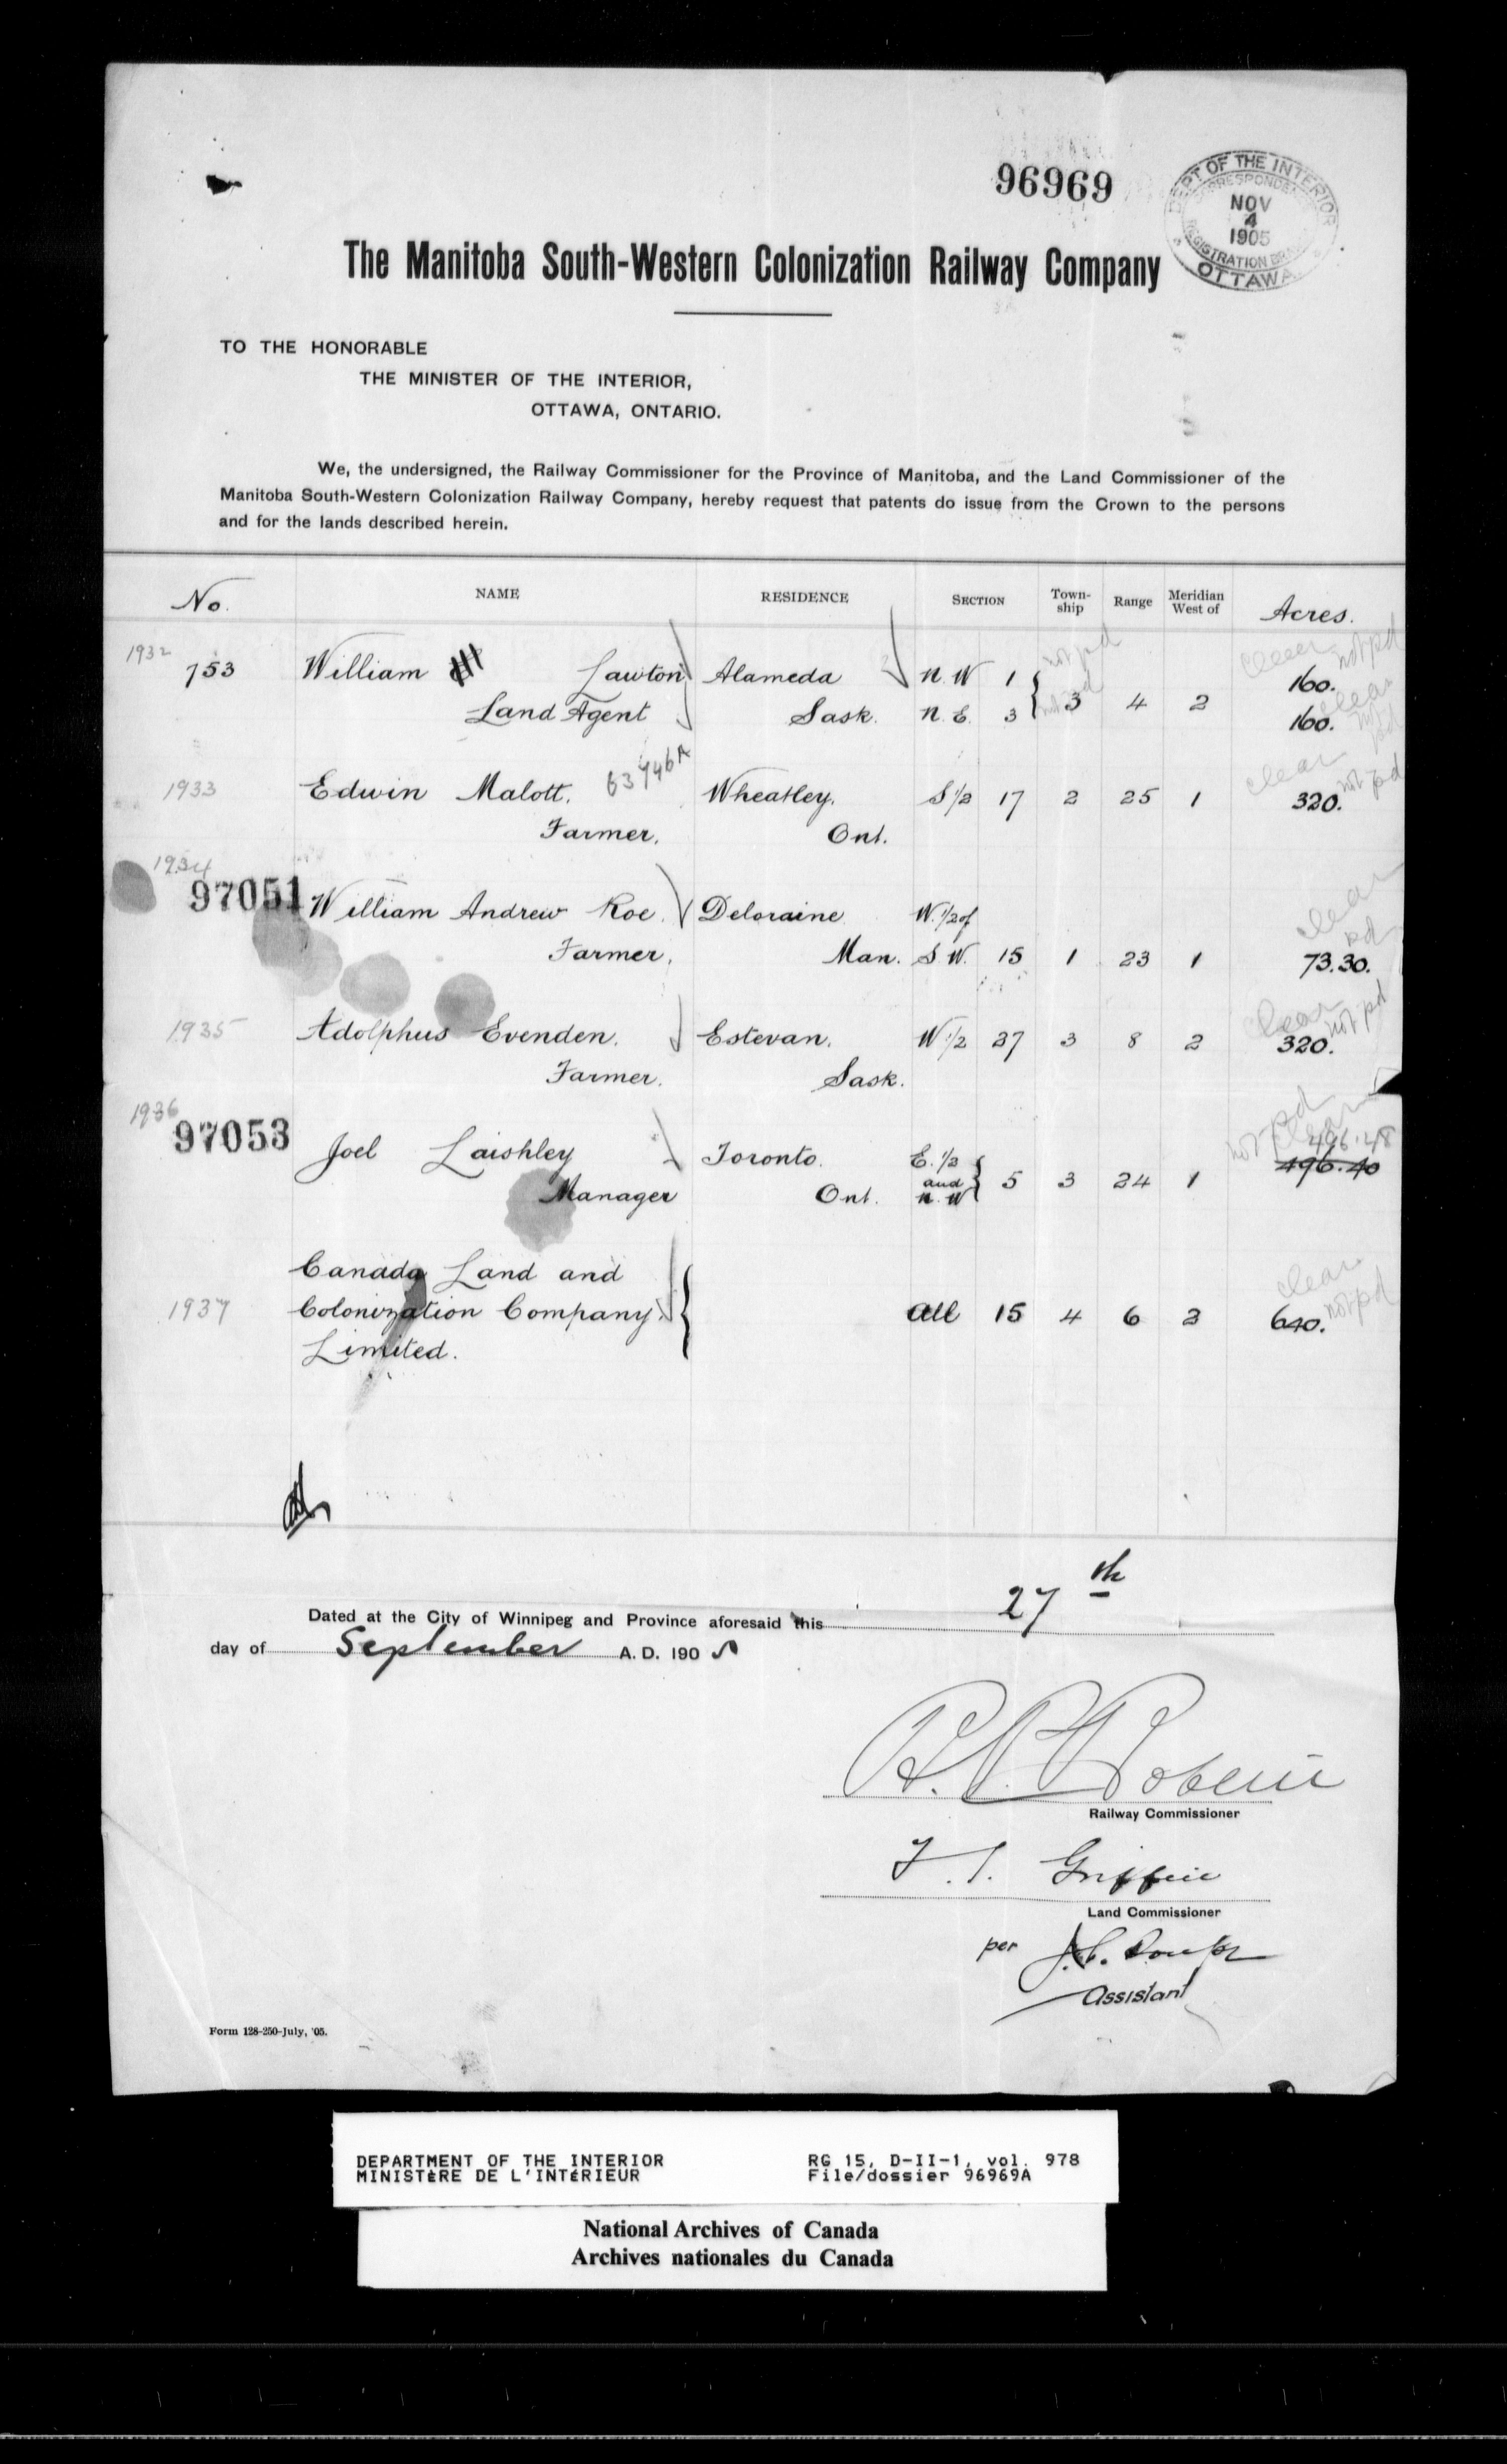 96969
DEPT OF THE INTERIOR
CORRESPONDENCE
NOV
4
1905
REGISTRATION BRANCH
OTTAWA
The Manitoba South-Western Colonization Railway Company
TO THE HONORABLE
THE MINISTER OF THE INTERIOR,
OTTAWA, ONTARIO.
We, the undersigned, the Railway Commissioner for the Province of Manitoba, and the Land Commissioner of the
Manitoba South-Western Colonization Railway Company, hereby request that patents do issue from the Crown to the persons
and for the lands described herein.
No. NAME RESIDENCE SECTION Town-ship Range Meridian West of Acres.
not pd clear not pd
1932
753 William Lawton Alameda N.W 1 160.
Land Agent Sask. N.E. 3 3 4 2 160. clear not pd
63446A clear not pd
1933 Edwin Malott. Wheatley. S 1/2 17 2 25 1 320.
Farmer. Ont.
1934 clear
97051 William Andrew Roe. Deloraine W. 1/2 of pd
Farmer. Man. S.W. 15 1 23 1 73.30.
clear not pd
1935 Adolphus Evenden. Estevan. W 1/2 27 3 8 2 320.
Farmer. Sask.
1936 not pd clear
97053 Joel Laishley Toronto. E. 1/2 496.48
and 5 3 24 1 496.40
Manager Ont. N.W
Canada Land and clear
1937 Colonization Company All 15 4 6 2 640. not pd
Limited.
Dated at the City of Winnipeg and Province aforesaid this 27th
day of September A. D. 1905
Railway Commissioner
F. T. Griffin
Land Commissioner
per
Assistant
Form 128-250-July, '05.
DEPARTMENT OF THE INTERIOR RG 15, D-II-1, vol. 978
MINISTÈRE DE L'INTÉRIEUR File/dossier 96969A
National Archives of Canada
Archives nationales du Canada